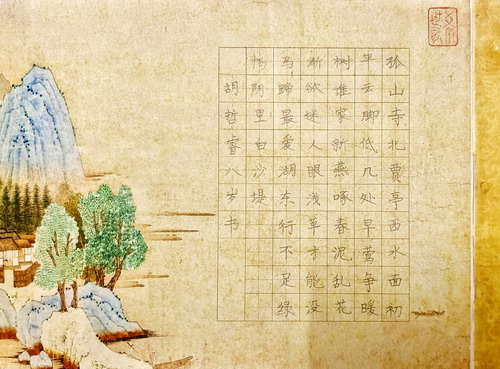 孤山寺北贾亭西水面初
平云脚低几处早莺争暖
树谁家新燕啄春泥乱花
渐欲迷人眼浅草才能没
马蹄最爱湖东行不足绿
杨阴里白沙堤
胡哲睿八岁书